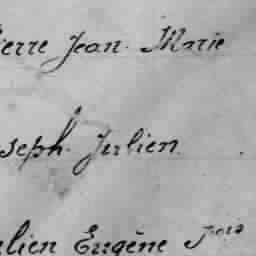 ierre Jean Marie
seph Julien
lien Eugène